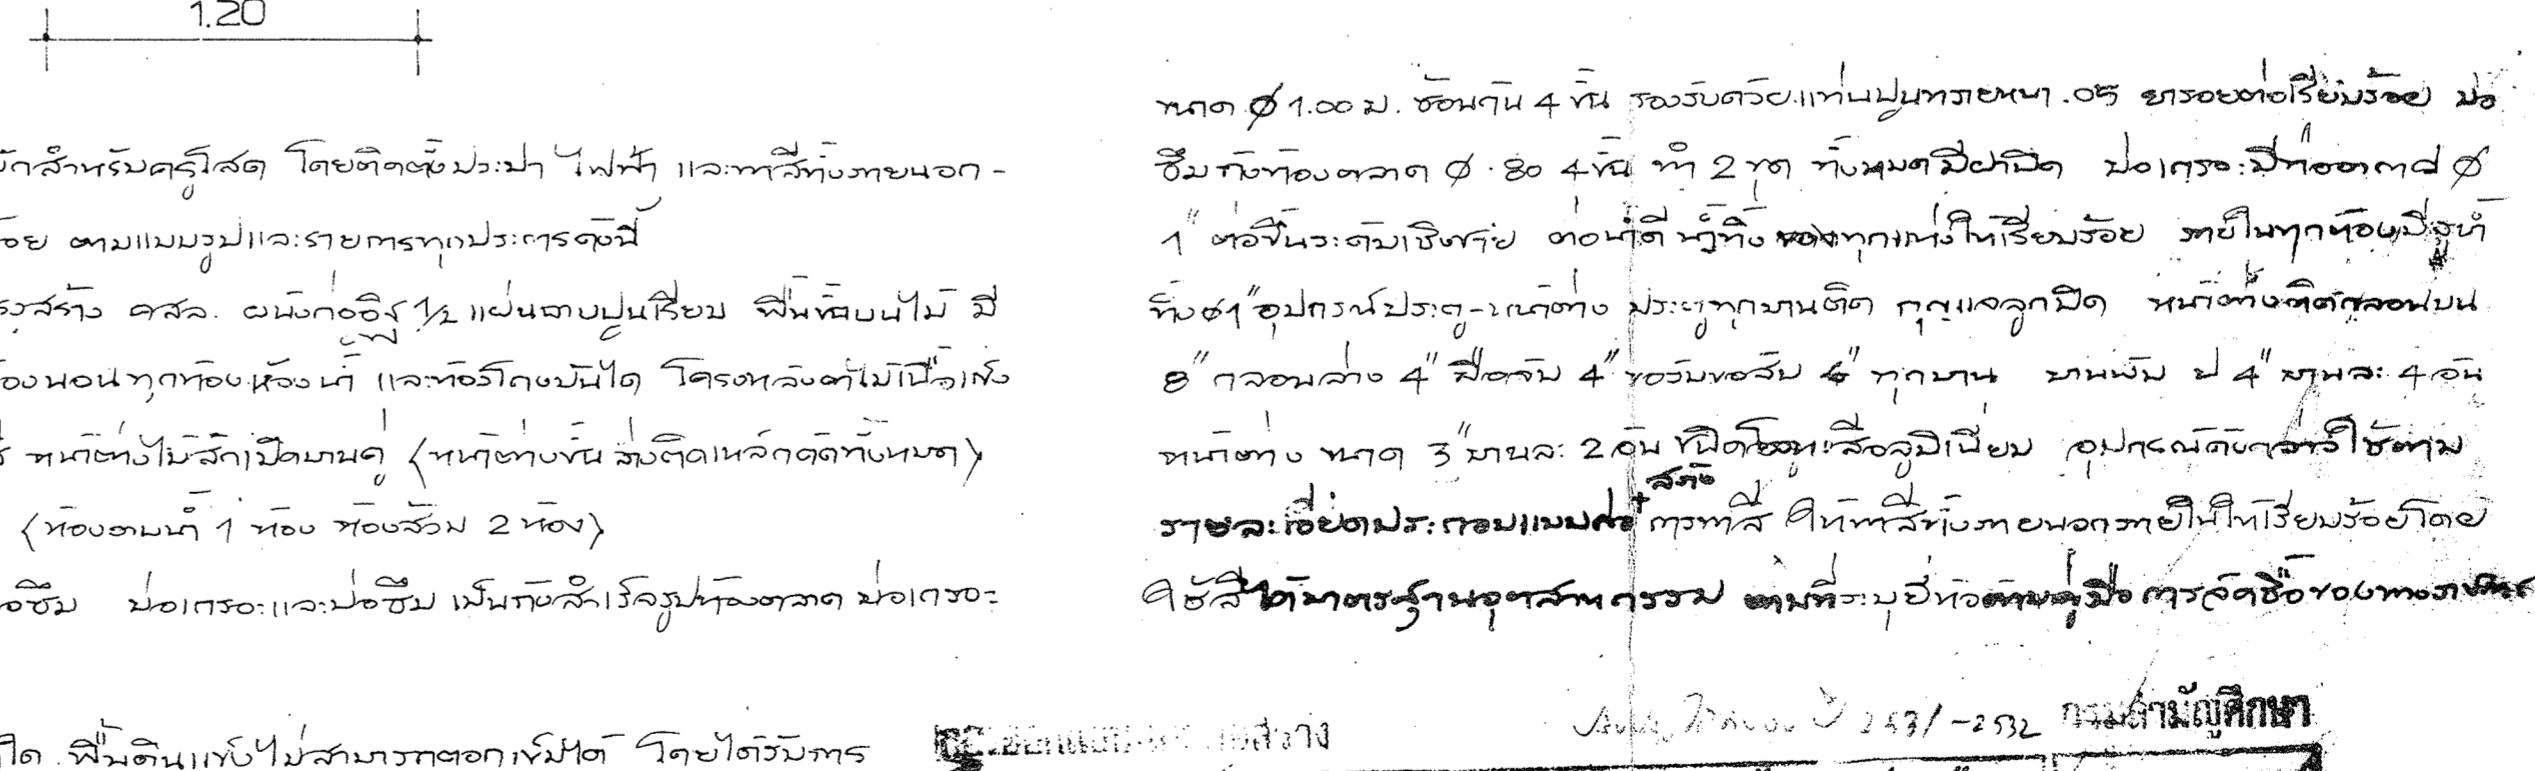 1.20
ักสำหรับครูโสด โดยติดตั้งประปา ไฟฟ้า และทาสีทั้งภายนอก -
้อย ตามแบบรูปและรายการทุกประการดังนี้
รงสร้าง คสล. ผนังก่ออิฐ 1/2 แผ่นฉาบปูนเรียบ พื้นชั้นบนไม้ มี
้องนอนทุกห้อง ห้องน้ำ และห้องโถงบันได โครงหลังคาไม้เนื้อแข็ง
หน้าต่างไม้สักเปิดบานคู่ (หน้าต่างชั้นล่างติดเหล็กดัดทั้งหมด)
(ห้องอาบน้ำ 1 ห้อง ห้องส้วม 2 ห้อง)
อซึม บ่อเกรอะและบ่อซึม เป็นถังสำเร็จรูปท้องตลาด บ่อเกรอะ
ใด พื้นดินแข็งไม่สามารถตอกเข็มได้ โดยได้รับการ
ขนาด Ø 1.00 ม. ซ้อนกัน 4 ชั้น รองรับด้วยแท่นปูนทรายหนา .05 ยารอยต่อเรียบร้อย บ่อ
ซึม ถังท้องตลาด Ø .80 4 ชั้น ทำ 2 ชุด ทั้งหมดมีฝาปิด บ่อเกรอะมีท่ออากาศ Ø
1" ต่อขึ้นระดับเชิงชาย ต่อน้ำดี น้ำทิ้ง ของทุกแห่งให้เรียบร้อย ภายในทุกห้องมีรูน้ำ
ทิ้ง Ø1" อุปกรณ์ประตู-หน้าต่าง ประตูทุกบานติด กุญแจลูกบิด หน้าต่างติดกลอนบน
8" กลอนล่าง 4" มือจับ 4" ขอรับขอสับ 6" ทุกบาน บานพับ ป 4" บานละ 4 อัน
หน้าต่าง ขนาด 3" บานละ 2 อัน ชนิดโลหะสีอลูมิเนี่ยม อุปกรณ์ดังกล่าวใช้ตาม
รายละเอียดประกอบแบบก่อสร้าง การทาสี ให้ทาสีทั้งภายนอกภายในให้เรียบร้อยโดย
ใช้สีได้มาตรฐานอุตสาหกรรม ตามที่ระบุยี่ห้อตามคู่มือ การจัดซื้อของทางราชการ
2531-2532
กรมสามัญศึกษา